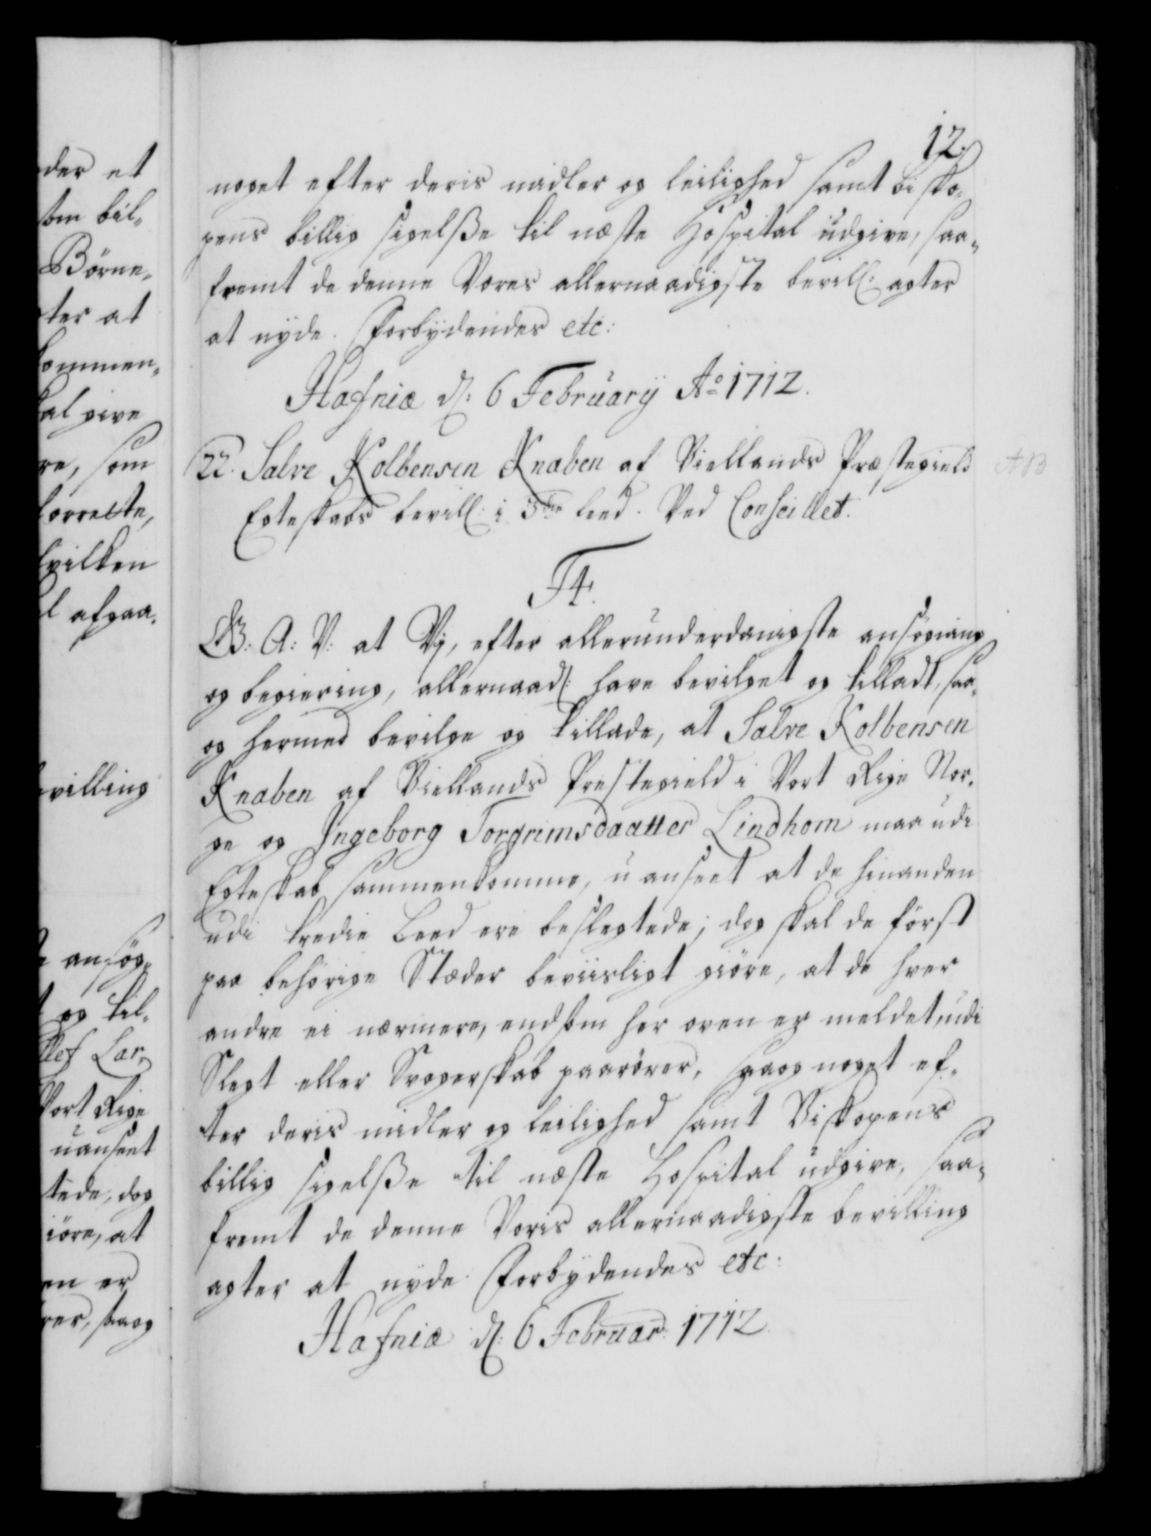 12.
noget efter deris midler og leilighed samt Bisko-
pens billig sigelsse til næste Hospital udgive, saa-
fremt de denne Vores allernaadigste bevill: agter
at nyde. Forbydendes etc:
Hafniæ d: 6 Februarij Ao 1712.
22. Salve Kolbensen Knaben af Siellands Præstegield
Egteskabs bevill: i 3die leed. Ved Conseillet.
F4.
G: A: V: at Vj, efter allerunderdanigste ansøgning
og begiering, allernaad: have bevilget og tilladt, saa-
og hermed bevilge og tillade, at Salve Kolbensen
Knaben af Siellands Præstegield i Vort Rige Nor-
ge og Ingeborg Torgrimsdaatter Lindhom maa udi
Egteskab sammenkomme, uanseet at de hinanden
udi tredie Leed ere beslegtede; dog skal de først
paa behørige Stæder beviisligt giøre, at de hver
andre ei nærmere, end som her oven er meldet, udi
Slegt eller Svogerskab paarører, saa og noget ef-
ter deris midler og leilighed samt Biskopens
billig sigelsse til næste Hospital udgive, saa-
fremt de denne Voris allernaadigste bevilling
agter at nyde. Forbydendes etc:
Hafniæ d: 6 Februar: 1712.
AB
der et
som bil-
Børne-
ter at
kommen-
kal give
re, som
forrette,
hvilken
l afgaa.
bevilling
ansøg-
og til-
lef Lar-
Vort Rige
uanseet
tede, dog
iøre, at
en er
rer, saa og